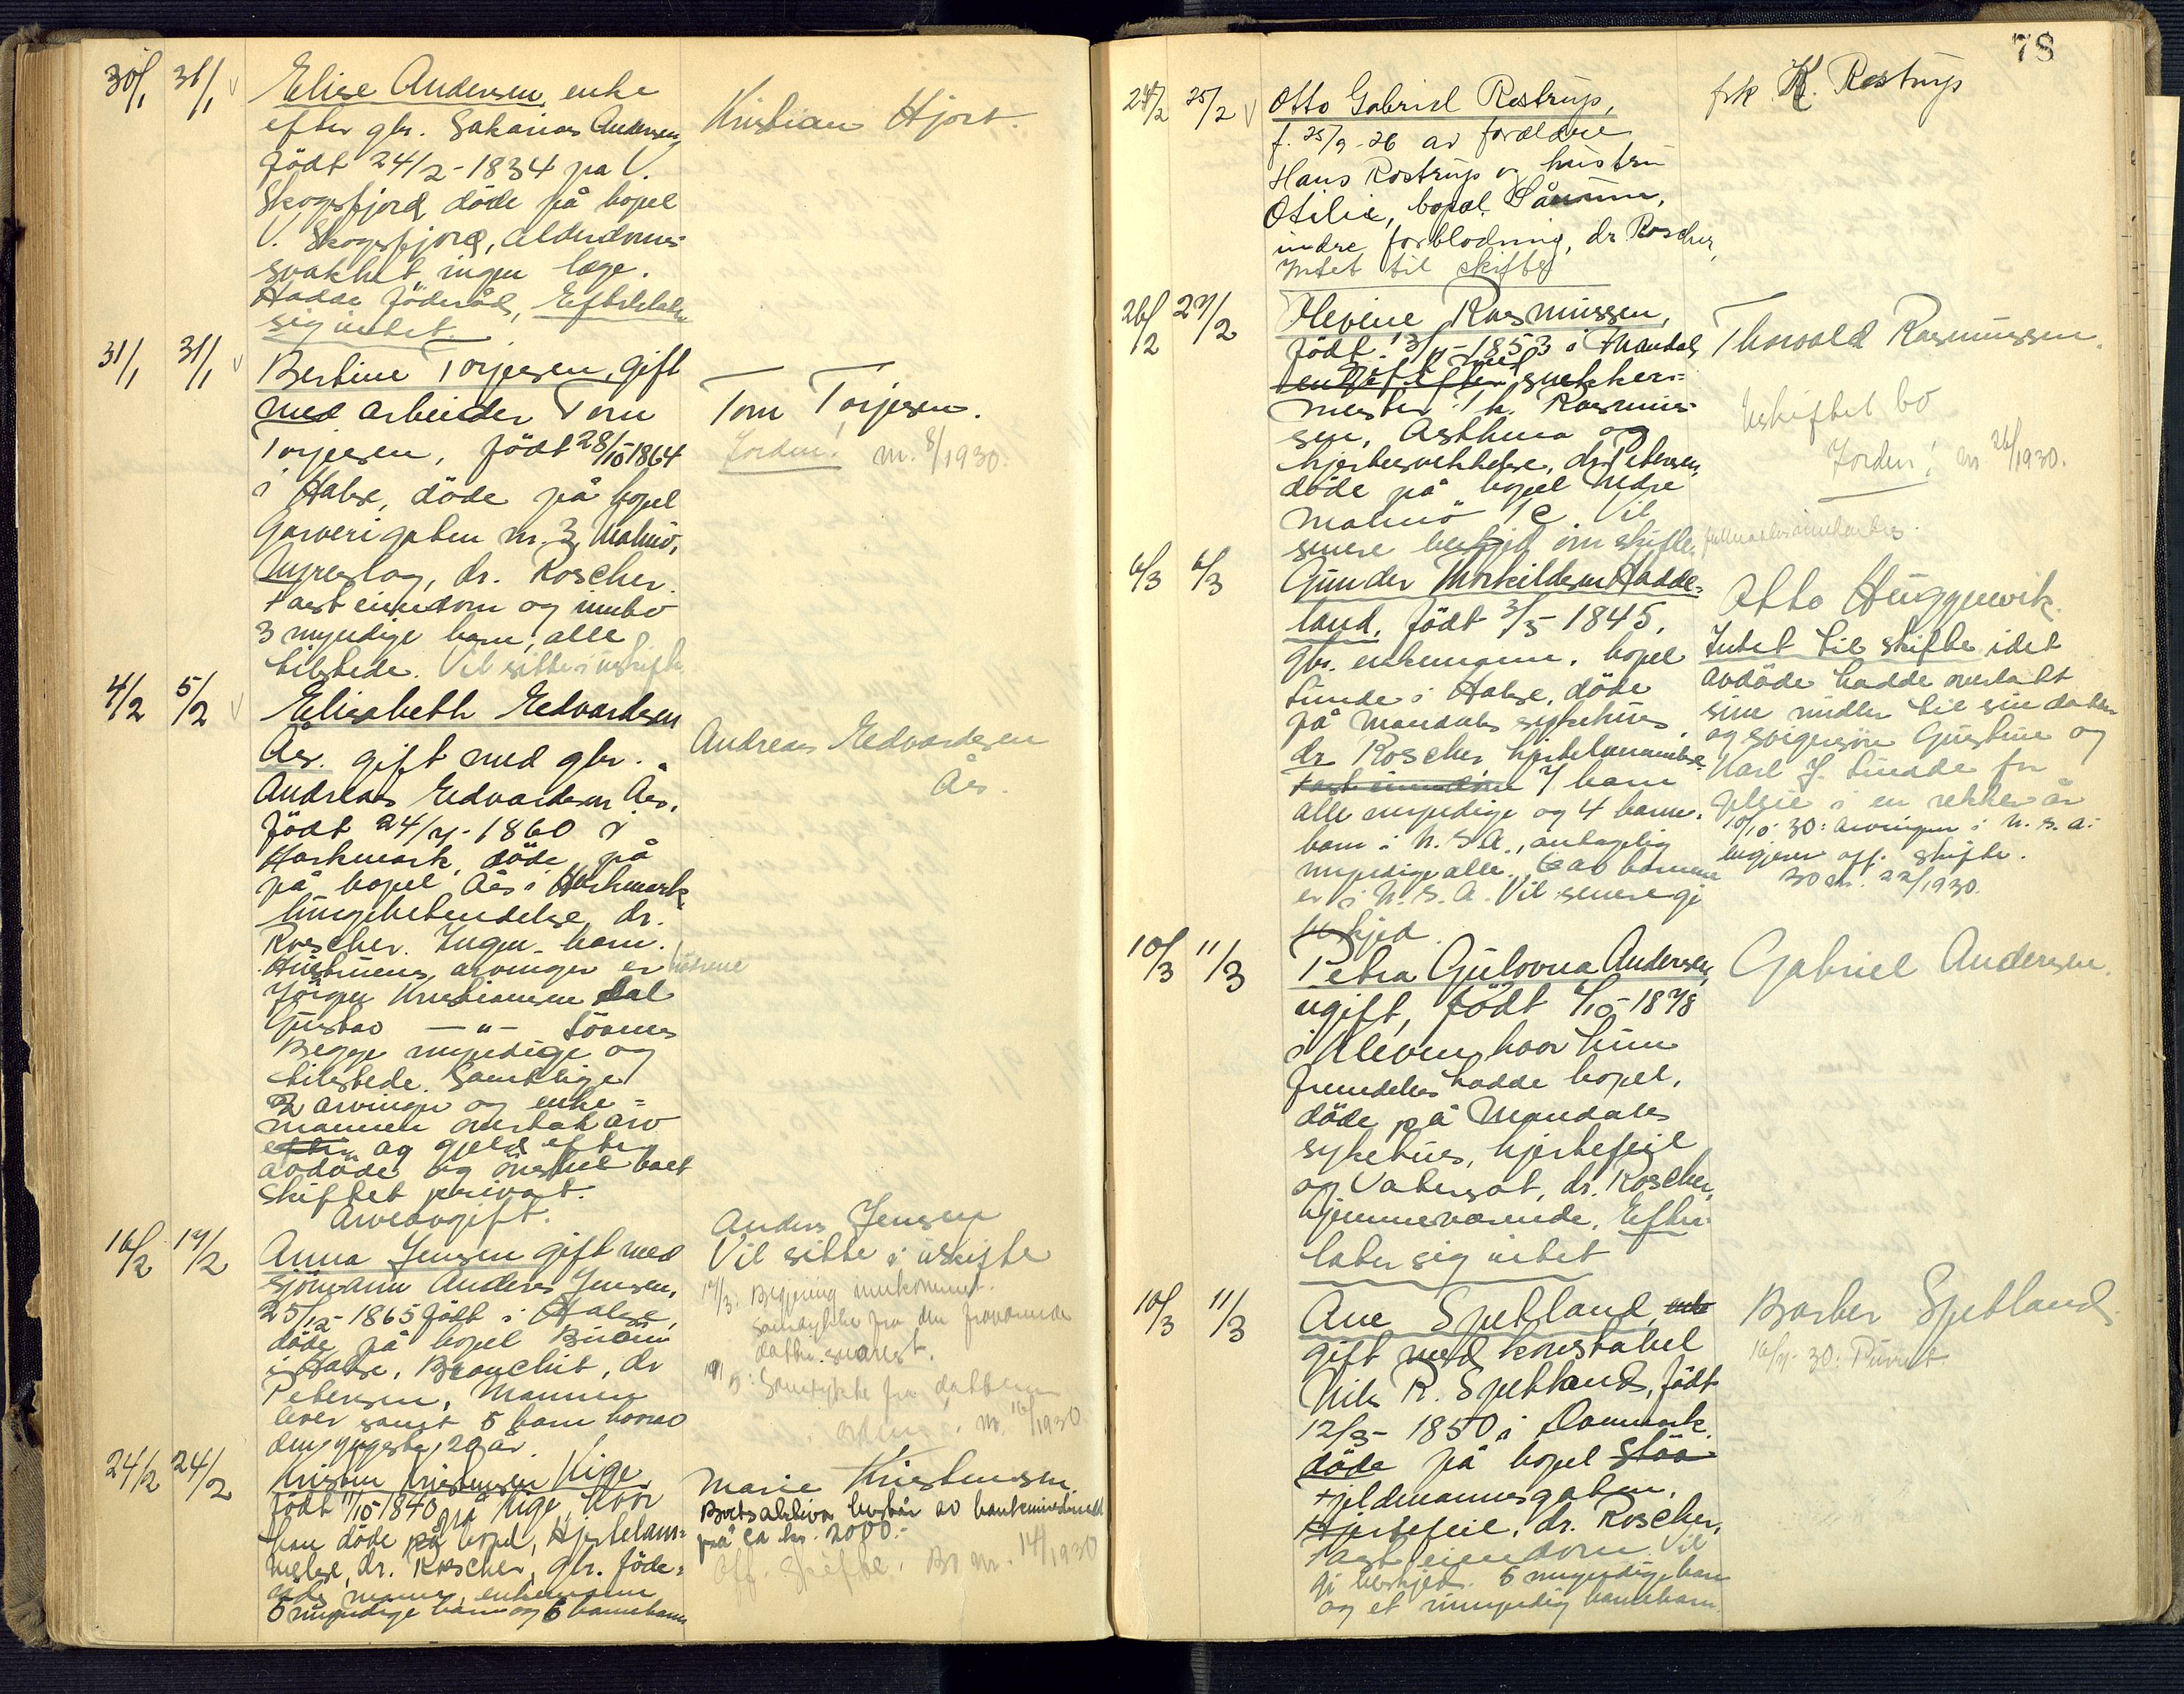 30/1 31/1
Elise Andersen, enke
efter gbr. Sakarias Andersen,
födt 24/2-1834 på V.
Skogsfjord, döde på bopel
V. Skogsfjord, alderdoms-
svakhet, ingen læge.
Hadde föderåd, Efterlater
sig intet.
Kristian Hjort.
31/1 31/1
Bertine Torjesen, gift
med arbeider Tom
Torjesen, födt 28/10 1864
i Halse, döde på bopel
Garverigaten nr. 3, Malmö,
dr. Roscher.
Fast eiendom og innbo
3 myndige barn, alle
tilstede. Vil sitte i uskifte
Tom Torjesen.
Jorden! nr. 8/1930.
4/2 5/2
Elisabeth Edvardsen
Ås. gift med gbr.
Andreas Edvardsen Ås,
födt 24/4-1860 i
Harkmark, döde på
på bopel Ås i Harkmark
lungebetendelse, dr.
Roscher. Ingen barn.
Hustruens arvinger er
Jörgen Kristiansen Dal
Gustav —"—
Begge myndige og
tilstede. Samtlige
2 arvinger og enke=
mannen overtok arv
efter og gjeld efter
avdöde og önsket boet
skiftet privat.
Arveavgift.
Andreas Edvardsen
Ås.
16/2 17/2
Anna Jensen gift med
sjömann Anders Jensen,
25/12-1865 födt i Halse,
döde på bopel
i Halse. Bronchit, dr
Petersen, Mannen
lever samt 5 barn hvorav
den yngste 20 år.
Anders Jensen
Vil sitte i uskifte
17/3: Begjering innkommet.
Samtykke fra den fraværende
datter
Samtykke fra datteren
nr. 16/1930
24/2 24/2
Kristen Kristensen Kige
födt 11/10 1840 på Kige, hvor
han döde på bopel, Hjertelam=
melse, dr. Roscher, gbr. föde=
råds mann, enkemann
5 myndige barn og 6 barnebarn
Marie Kristensen.
Boets aktiva består av bankinnskudd
på ca kr. 2000.-
Off. skifte. Bo nr. 14/1930
78
24/2 25/2
Otto Gabriel Rostrup,
f. 25/9-26 av foreldre
Hans Rostrup og hustru
Otilie, bopel Sånum,
indre forblødning, dr. Roscher,
Intet til skifte
frk. K. Rostrup
26/2 27/2
Olevine Rasmussen,
födt 13/4-1853 i Mandal
gift med
enke efter snekker=
mester Th. Rasmus=
sen, Asthma og
hjertesvekkelse, dr. Petersen,
döde på bopel Nedre
Malmö 1c. Vil
senere beskjed om skifte
Thorvald Rasmussen.
Uskiftet bo
Jorden! nr 26/1930.
6/3 6/3
Gunder Thorkildsen Hadde=
land, födt 3/5 1845,
gbr. enkemann, bopel
Lunde i Halse, döde
på Mandals sykehus,
dr. Roscher, hjertelammelse.
Fast eiendom 7 barn
alle myndige og 4 barne-
barn i U.S.A., antagelig
myndige alle. 6 av barnene
er i U.S.A. Vil senere gi
beskjed.
Otto Huggenvik.
Intet til skifte idet
avdöde hadde overlatt
sine midler til sin datter
og svigersön Gustine og
Karl J. Lunde for
pleie i en rekke år
10/10-30: Arvinger i U.S.A.
begjerer off. skifte.
Bo nr. 22/1930.
10/3 11/3
Petra Gulovna Andersen,
ugift, födt 4/10-1878
i Kleven, hvor hun
fremdeles hadde bopel,
döde på Mandals
sykehus, hjertefeil
og Vatersot, dr. Roscher,
hjemmeværende. Efter-
later sig intet
Gabriel Andersen.
10/3 11/3
Ane Spetland, enke
gift med konstabel
Nils R. Spetland, födt
12/3-1850 i Danmark
döde på bopel Stöa
Fjeldmannsgaten.
Hjertefeil, dr. Roscher,
Fast eiendom. Vil
gi beskjed. 5 myndige barn
og et umyndig barnebarn.
Barber Spetland
16/4-30: Purret